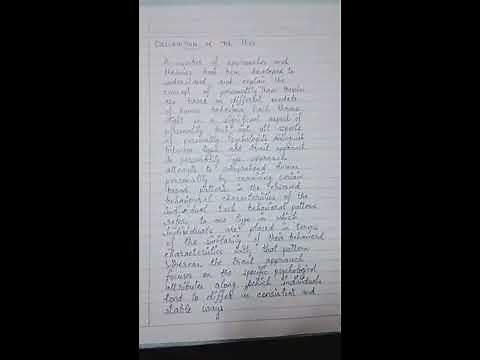 DESCRIPTION OF THE TEST
A number of approaches and
theories have been developed to
understand and explain the
concept of personality. These theories
are based on different models
of human behaviour. Each theory
in a significant aspect of
personality but not all aspects
of personality. Psychologists distinguish
between type and trait approach
to personality. Type approach
attempts to comprehend human
personality by examining certain
broad pattern in the observed
behavioural characteristics of the
individual. Each behavioural pattern
refer to one type in which
individuals are placed in terms
of the similarity of their behavioral
characteristics with that pattern
whereas the trait approach
focuses on the specific psychological
attributes along which individuals
tend to differ in consistent and
stable ways